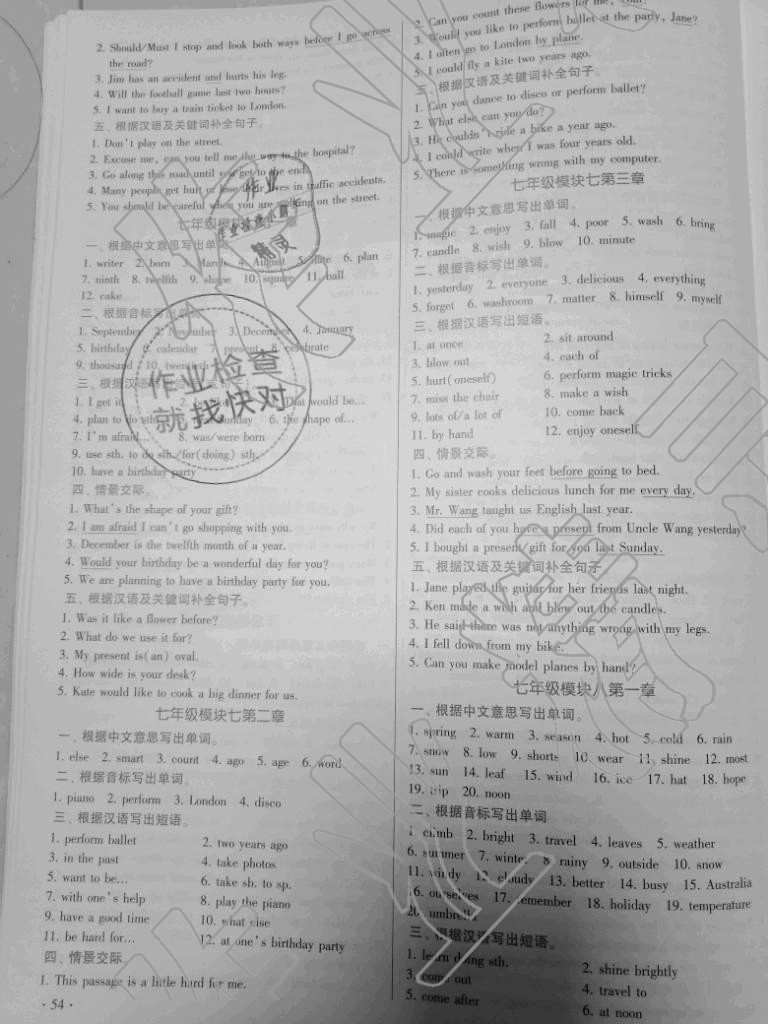 2. Should/Must I stop and look both ways before I go across
the road?
3. Jim has an accident and hurts his leg.
4. Will the football game last two hours?
5. I want to buy a train ticket to London.
五、根据汉语及关键词补全句子。
1. Don't play on the street.
2. Excuse me, can you tell me the way to the hospital?
3. Go along this road until you get to the end.
4. Many people get hurt or lose their lives in traffic accidents.
5. You should be careful when you are walking on the street.
七年级模块七第一章
一、根据中文意思写出单词
1. writer 2. born 3. March 4. August 5. date 6. plan
7. ninth 8. twelfth 9. shape 10. square 11. ball
12. cake
二、根据音标写出单词
1. September 2. November 3. December 4. January
5. birthday 6. calendar 7. present 8. celebrate
9. thousand 10. twentieth
三、根据汉语
1. I get it 2. 3. That would be...
4. plan to do sth. 5. Sunday 6. the shape of...
7. I'm afraid... 8. was/were born
9. use sth. to do sth./for(doing) sth.
10. have a birthday party
四、情景交际。
1. What's the shape of your gift?
2. I am afraid I can't go shopping with you.
3. December is the twelfth month of a year.
4. Would your birthday be a wonderful day for you?
5. We are planning to have a birthday party for you.
五、根据汉语及关键词补全句子。
1. Was it like a flower before?
2. What do we use it for?
3. My present is(an) oval.
4. How wide is your desk?
5. Kate would like to cook a big dinner for us.
七年级模块七第二章
一、根据中文意思写出单词。
1. else 2. smart 3. count 4. ago 5. age 6. word
二、根据音标写出单词。
1. piano 2. perform 3. London 4. disco
三、根据汉语写出短语。
1. perform ballet 2. two years ago
3. in the past 4. take photos
5. want to be... 6. take sb. to sp.
7. with one's help 8. play the piano
9. have a good time 10. what else
11. be hard for... 12. at one's birthday party
四、情景交际。
1. This passage is a little hard for me.
· 54 ·
2. Can you count these flowers for me,
3. Would you like to perform ballet at the party, Jane?
4. I often go to London by plane.
5. I could fly a kite two years ago.
五、根据汉语及关键词补全句子。
1. Can you dance to disco or perform ballet?
2. What else can you do?
3. He couldn't ride a bike a year ago.
4. I could write when I was four years old.
5. There is something wrong with my computer.
七年级模块七第三章
一、根据中文意思写出单词。
1. magic 2. enjoy 3. fall 4. poor 5. wash 6. bring
7. candle 8. wish 9. blow 10. minute
二、根据音标写出单词。
1. yesterday 2. everyone 3. delicious 4. everything
5. forget 6. washroom 7. matter 8. himself 9. myself
三、根据汉语写出短语。
1. at once 2. sit around
3. blow out 4. each of
5. hurt(oneself) 6. perform magic tricks
7. miss the chair 8. make a wish
9. lots of/a lot of 10. come back
11. by hand 12. enjoy oneself
四、情景交际。
1. Go and wash your feet before going to bed.
2. My sister cooks delicious lunch for me every day.
3. Mr. Wang taught us English last year.
4. Did each of you have a present from Uncle Wang yesterday?
5. I bought a present/gift for you last Sunday.
五、根据汉语及关键词补全句子
1. Jane played the guitar for her friends last night.
2. Ken made a wish and blew out the candles.
3. He said there was not anything wrong with my legs.
4. I fell down from my bike.
5. Can you make model planes by hand?
七年级模块八第一章
一、根据中文意思写出单词。
1. spring 2. warm 3. season 4. hot 5. cold 6. rain
7. snow 8. low 9. shorts 10. wear 11. shine 12. most
13. sun 14. leaf 15. wind 16. ice 17. hat 18. hope
19. trip 20. noon
二、根据音标写出单词
1. climb 2. bright 3. travel 4. leaves 5. weather
6. summer 7. winter 8. rainy 9. outside 10. snow
11. windy 12. cloudy 13. better 14. busy 15. Australia
16. ourselves 17. remember 18. holiday 19. temperature
20. umbrella
三、根据汉语写出短语。
1. learn doing sth. 2. shine brightly
3. come out 4. travel to
5. come after 6. at noon
作业检查
就找快对
作业
精灵